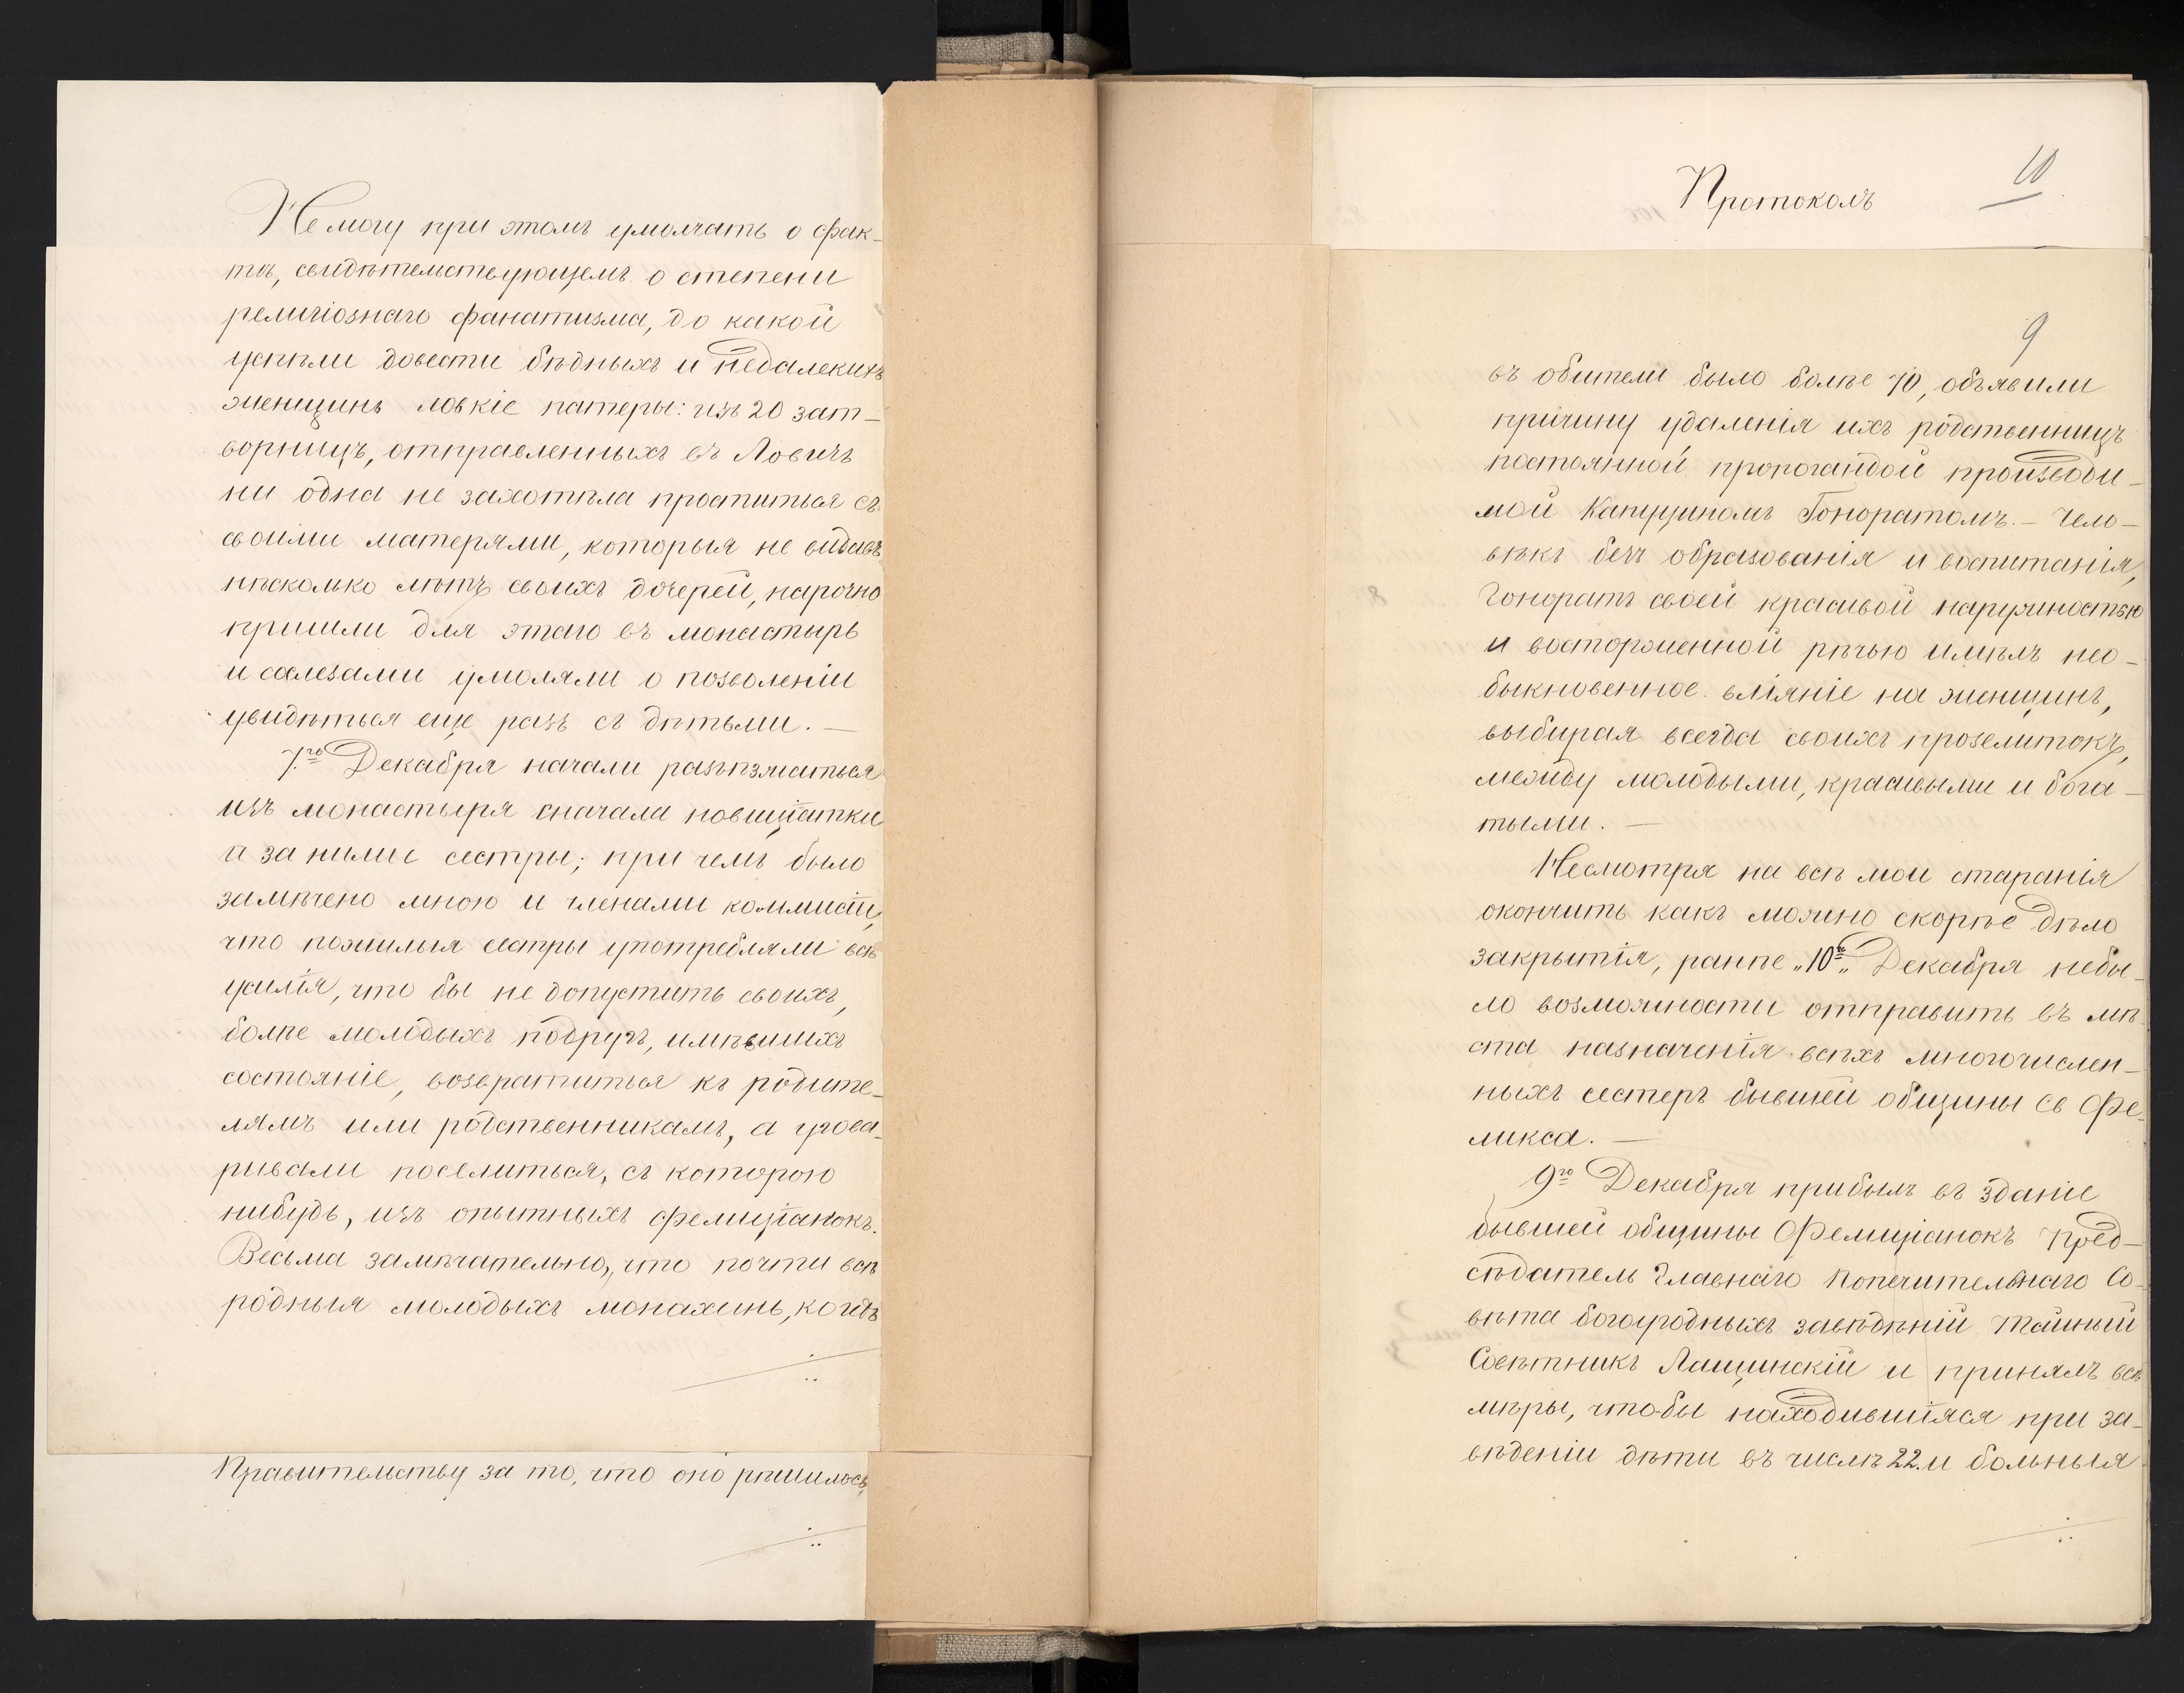 Не могу при этомъ умолчать о фак-
тѣ, свидѣтельствующемъ о степени
религіознаго фанатизма, до какой
успѣли довести бѣдныхъ и недалекихъ
женщинъ ловкіе патеры: изъ 20 зат-
ворницъ, отправленныхъ въ Ловичъ
ни одна не захотѣла проститься съ
своими матерями, которыя не видавъ
нѣсколько лѣтъ своихъ дочерей, нарочно
пришли для этаго въ монастырь
и сослезами умоляли о позволеніи
увидѣться еще разъ съ дѣтьми. —
7го Декабря начали разъѣзжаться
изъ монастыря сначала новиціатки
а за ними сестры; при чемъ было
замѣчено мною и членами коммисіи,
что пожилыя сестры употребляли всѣ
усилія, что бы не допустить своихъ,
болѣе молодыхъ подругъ, имѣвшихъ
состояніе, возвратиться къ родите-
лямъ или родственникамъ, а угова-
ривали поселиться, съ которою
нибудь, изъ опытныхъ фелиціанокъ.
Весьма замѣчательно, что почти всѣ
родныя молодыхъ монахинь, коихъ
Правительству за то, что оно рѣшилось
Протоколъ
10
9
въ обители было болѣе 70, объявили
причину удаленія ихъ родственницъ
постоянной пропогандой производи-
мой Капуциномъ Гоноратомъ. — Чело-
вѣкъ безъ образованія и воспитанія,
Гоноратъ своей красивой наружностью
и восторженной рѣчью имѣлъ нео-
быкновенное вліяніе на женщинъ,
выбирая всегда своихъ прозелитокъ,
между молодыми, красивыми и бога-
тыми. —
Несмотря на всѣ мои старанія
окончить какъ можно скорѣе дѣло
закрытія, ранѣе „10го„ Декабря небы-
ло возможности отправить въ мѣ-
ста назначенія всѣхъ многочислен-
ныхъ сестеръ бывшей общины Св Фе-
ликса. —
9го Декабря прибылъ въ зданіе
бывшей общины Фелиціанокъ Пред-
сѣдатель Главнаго Попечительнаго Со-
вѣта богоугодныхъ завѣдѣній Тайный
Совѣтникъ Лащинскій и принялъ всѣ
мѣры, что-бы находившіяся при за-
вѣденіи дѣти въ числѣ 22 и больныя